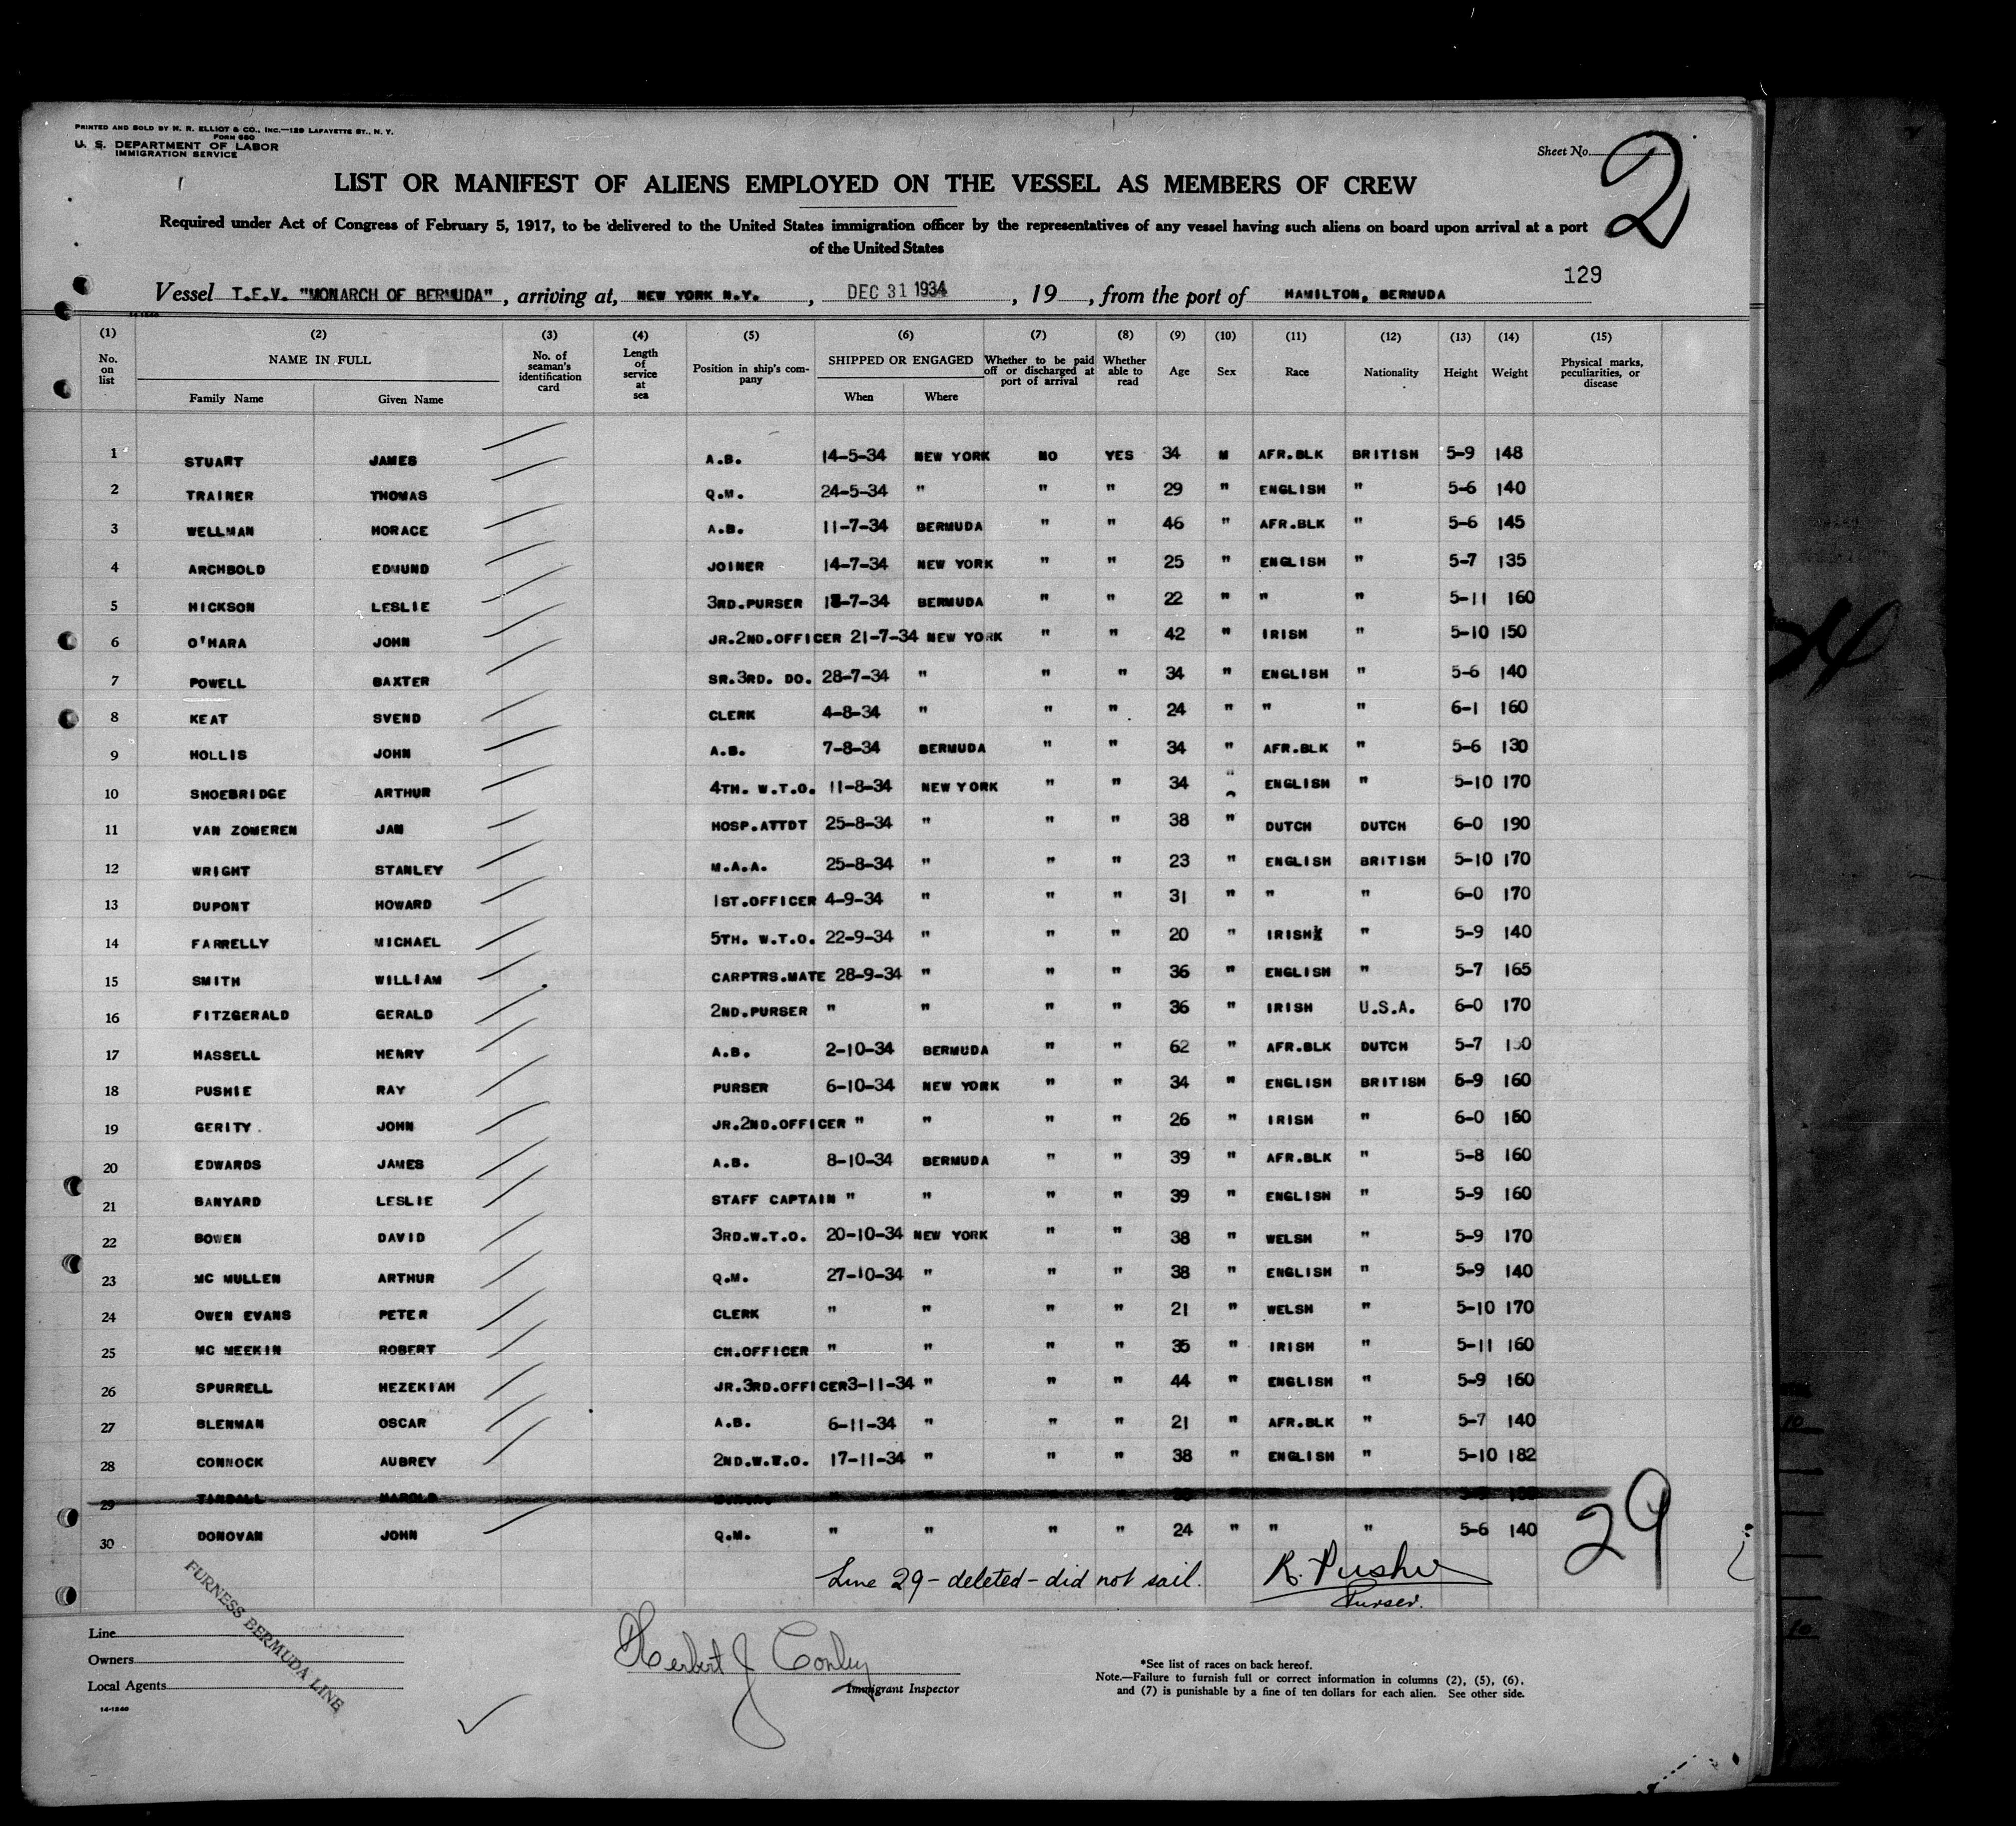 PRINTED AND SOLD BY H. R. ELLIOT & CO., INC.—129 LAFAYETTE ST., N. Y.
FORM 680
U. S. DEPARTMENT OF LABOR
IMMIGRATION SERVICE
Sheet No. 2
LIST OR MANIFEST OF ALIENS EMPLOYED ON THE VESSEL AS MEMBERS OF CREW
Required under Act of Congress of February 5, 1917, to be delivered to the United States immigration officer by the representatives of any vessel having such aliens on board upon arrival at a port
of the United States
129
Vessel T.E.V. "MONARCH OF BERMUDA", arriving at, NEW YORK N.Y., DEC 31 1934, 19, from the port of HAMILTON, BERMUDA
14-1240
(1) (2) (3) (4) (5) (6) (7) (8) (9) (10) (11) (12) (13) (14) (15)
No. on list NAME IN FULL Family Name Given Name No. of seaman's identification card Length of service at sea Position in ship's company SHIPPED OR ENGAGED When Where Whether to be paid off or discharged at port of arrival Whether able to read Age Sex Race Nationality Height Weight Physical marks, peculiarities, or disease
1 STUART JAMES A.B. 14-5-34 NEW YORK NO YES 34 M AFR.BLK BRITISH 5-9 148
2 TRAINER THOMAS Q.M. 24-5-34 " " " 29 " ENGLISH " 5-6 140
3 WELLMAN HORACE A.B. 11-7-34 BERMUDA " " 46 " AFR.BLK " 5-6 145
4 ARCHBOLD EDMUND JOINER 14-7-34 NEW YORK " " 25 " ENGLISH " 5-7 135
5 HICKSON LESLIE 3RD.PURSER BERMUDA " " 22 " " " 5-11 160
6 O'HARA JOHN JR.2ND.OFFICER 21-7-34 NEW YORK " " 42 " IRISH " 5-10 150
7 POWELL BAXTER SR.3RD. DO. 28-7-34 " " " 34 " ENGLISH " 5-6 140
8 KEAT SVEND CLERK 4-8-34 " " " 24 " " " 6-1 160
9 HOLLIS JOHN A.B. 7-8-34 BERMUDA " " 34 " AFR.BLK " 5-6 130
10 SHOEBRIDGE ARTHUR 4TH. W.T.O. 11-8-34 NEW YORK " " 34 " ENGLISH " 5-10 170
11 VAN ZOMEREN JAN HOSP.ATTDT 25-8-34 " " " 38 " DUTCH DUTCH 6-0 190
12 WRIGHT STANLEY M.A.A. 25-8-34 " " " 23 " ENGLISH BRITISH 5-10 170
13 DUPONT HOWARD 1ST.OFFICER 4-9-34 " " " 31 " " " 6-0 170
14 FARRELLY MICHAEL 5TH. W.T.O. 22-9-34 " " " 20 " IRISH " 5-9 140
15 SMITH WILLIAM CARPTRS.MATE 28-9-34 " " " 36 " ENGLISH " 5-7 165
16 FITZGERALD GERALD 2ND.PURSER " " " " 36 " IRISH U.S.A. 6-0 170
17 HASSELL HENRY A.B. 2-10-34 BERMUDA " " 62 " AFR.BLK DUTCH 5-7
18 PUSHIE RAY PURSER 6-10-34 NEW YORK " " 34 " ENGLISH BRITISH 5-9 160
19 GERITY JOHN JR.2ND.OFFICER " " " " 26 " IRISH " 6-0 160
20 EDWARDS JAMES A.B. 8-10-34 BERMUDA " " 39 " AFR.BLK " 5-8 160
21 BANYARD LESLIE STAFF CAPTAIN " " " " 39 " ENGLISH " 5-9 160
22 BOWEN DAVID 3RD.W.T.O. 20-10-34 NEW YORK " " 38 " WELSH " 5-9 170
23 MC MULLEN ARTHUR Q.M. 27-10-34 " " " 38 " ENGLISH " 5-9 140
24 OWEN EVANS PETER CLERK " " " " 21 " WELSH " 5-10 170
25 MC MEEKIN ROBERT CH.OFFICER " " " " 35 " IRISH " 5-11 160
26 SPURRELL HEZEKIAH JR.3RD.OFFICER 3-11-34 " " " 44 " ENGLISH " 5-9 160
27 BLENMAN OSCAR A.B. 6-11-34 " " " 21 " AFR.BLK " 5-7 140
28 CONNOCK AUBREY 2ND.W.T.O. 17-11-34 " " " 38 " ENGLISH " 5-10 182
29 HAROLD
30 DONOVAN JOHN Q.M. " " " " 24 " " " 5-6 140
29
Line 29 - deleted - did not sail. R. Pushie
Purser.
FURNESS BERMUDA LINE
Line
Owners
Local Agents
14-1240
Herbert J Conley
Immigrant Inspector
*See list of races on back hereof.
Note.—Failure to furnish full or correct information in columns (2), (5), (6),
and (7) is punishable by a fine of ten dollars for each alien. See other side.